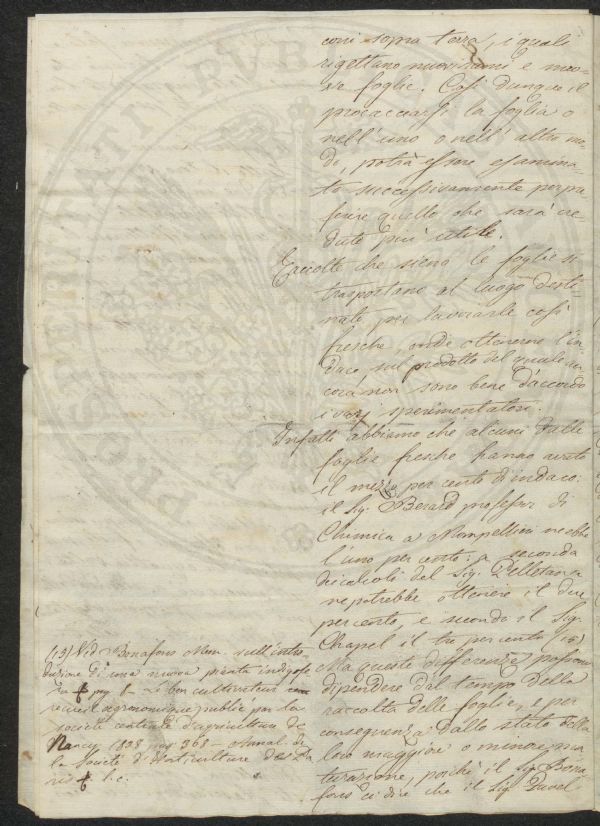 coni sopra terra, i quali
rigettano nuovi rami e nuo-
ve foglie. Così dunque il
procacciarsi la foglia o
nell'uno o nell'altro mo-
do, potrà essere esamina-
to successivamente per pre
ferire quello che sarà cre-
duto più utile.
Raccolte che sieno le foglie si
trasportano al luogo desti-
nato per lavorarle così
fresche, onde ottenerne l'in-
daco sul prodotto del quale an-
cora non sono bene d'accordo
i varj sperimentatori.
Infatti abbiamo che alcuni dalle
foglie fresche hanno avuto
il mezzo per cento di indaco:
il Sig. Berard professor di
Chimica a Mompellieri n'ebbe
l'uno per cento: a seconda
dei calcoli del Sig. Pelletan
ne potrebbe ottenere il due
per cento, e secondo il Sig.
Chapel il tre per cento (15)
Ma queste differenze possono
dipendere dal tempo della
raccolta delle foglie, e per
conseguenza dallo stato della
loro maggiore o minore ma
turazione, poichè il Sig. Bona
fons ci dice che il Sig.
(15) Vid Bonafons Mem. sull'intro
duzione di una nuova pianta indigofe
ra pag 8 - Le bon cultivateur
recueil agronomique publié par la
société centrale d'agriculture de
Nancy 1838 pag 368 - Annal. de
la Société d'Horticulture de Pa
ris l.c.